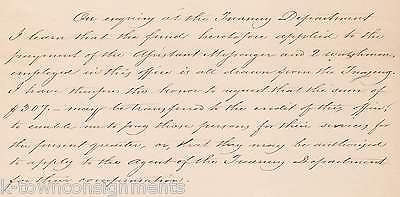 On enquiry at the Treasury Department
I learn that the funds heretofore applied to the
payment of the Assistant Messenger and 2 watchmen,
employed in this office is all drawn from the Treasury.
I have therefore the honor to request that the sum of
$307— may be transferred to the credit of this office,
to enable me to pay those persons for their services for
the present quarter, or, that they may be authorized
to apply to the Agent of the Treasury Department
for their compensation.
k-townconsignments